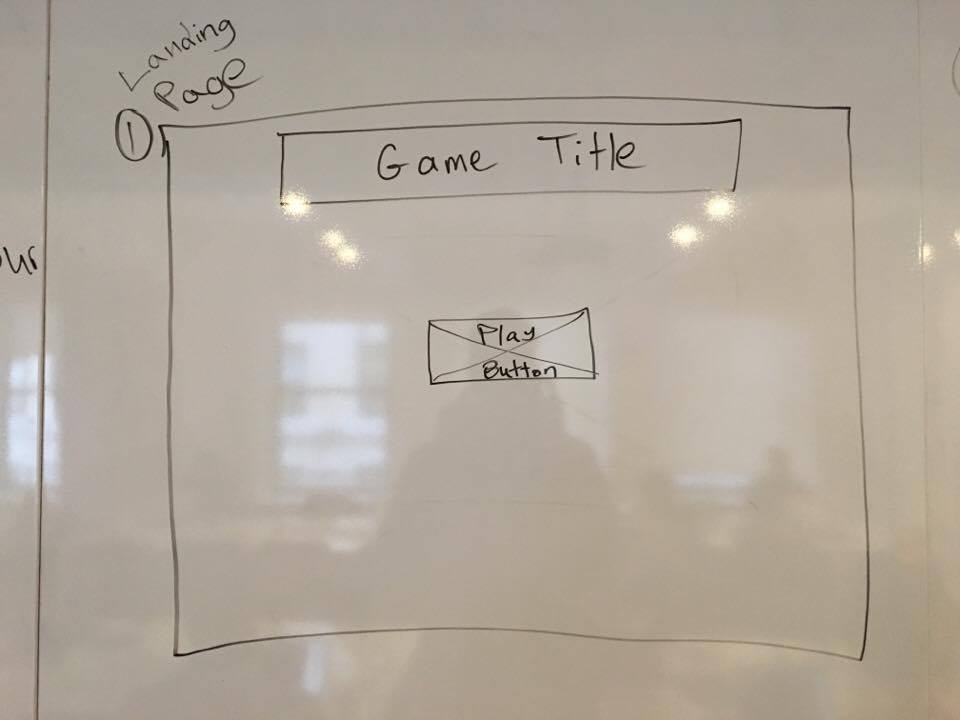 Landing
Page
1
Game Title
Play
Button